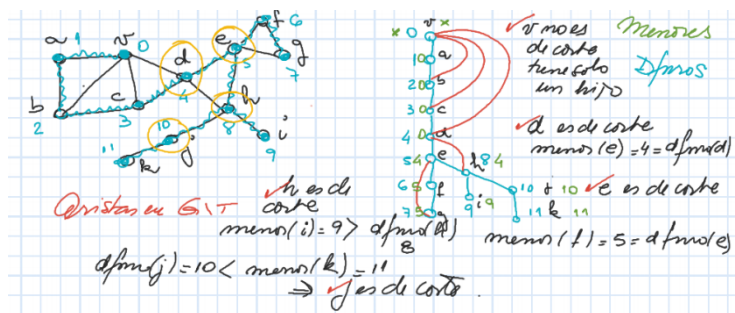 a 1 v 0 d 4 e 5 f 6 g 7
b 2 c 3 h 8 i 9
11 k 10 j
x 0 v x
1 0 a
2 0 b
3 0 c
4 0 d
5 4 e h 8 4
6 5 f 9 i 9 10 j 10
7 5 g 11 k 11
✓ v no es
de corte
tiene solo
un hijo
Menores
Dfnros
✓ d es de corte
menor(e) = 4 = dfnro(d)
✓ e es de corte
menor(f) = 5 = dfnro(e)
Aristas en G\T
✓ h es de
corte
menor(i) = 9 > dfnro(h)
8
dfnro(j) = 10 < menor(k) = 11
⇒ ✓ j es de corte.